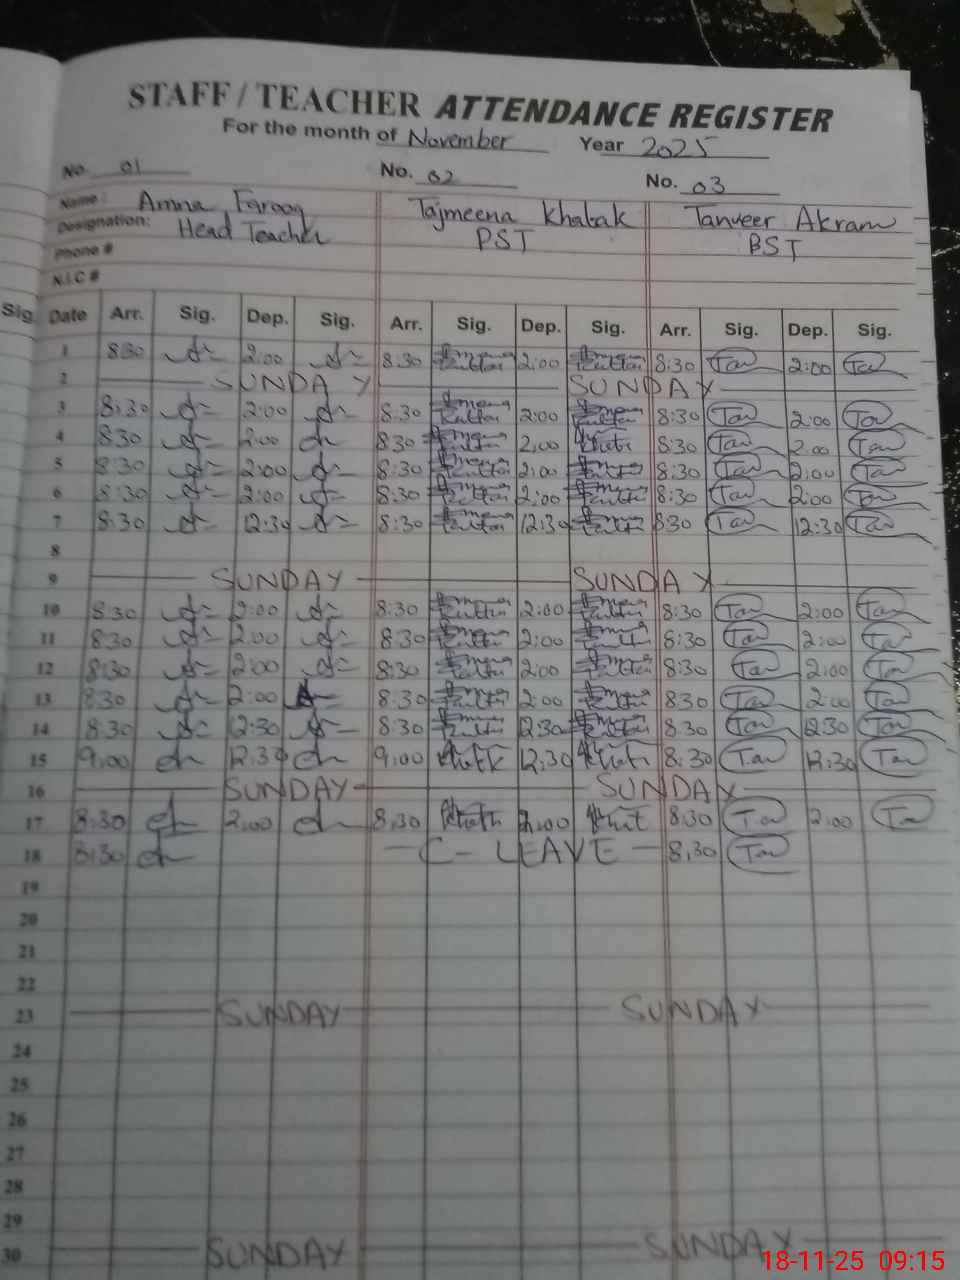 STAFF / TEACHER ATTENDANCE REGISTER
For the month of November Year 2025
No. 01 No. 02 No. 03
Name: Amna Farooq Tajmeena Khatak Tanveer Akram
Designation: Head Teacher PST BST
Phone #
N.I.C #
Sig. Date Arr. Sig. Dep. Sig. Arr. Sig. Dep. Sig. Arr. Sig. Dep. Sig.
1 8:30 2:00 8:30 2:00 8:30 Tan 2:00 Tan
2 SUNDAY SUNDAY
3 8:30 2:00 8:30 2:00 8:30 Tan 2:00 Tan
4 8:30 2:00 8:30 2:00 8:30 Tan 2:00 Tan
5 8:30 2:00 8:30 2:00 8:30 Tan 2:00 Tan
6 8:30 2:00 8:30 2:00 8:30 Tan 2:00 Tan
7 8:30 12:30 8:30 12:30 8:30 Tan 12:30 Tan
8
9 SUNDAY SUNDAY
10 8:30 2:00 8:30 2:00 8:30 Tan 2:00 Tan
11 8:30 2:00 8:30 2:00 8:30 Tan 2:00 Tan
12 8:30 2:00 8:30 2:00 8:30 Tan 2:00 Tan
13 8:30 2:00 8:30 2:00 8:30 Tan 2:00 Tan
14 8:30 12:30 8:30 12:30 8:30 Tan 12:30 Tan
15 9:00 12:30 9:00 12:30 8:30 Tan 12:30 Tan
16 SUNDAY SUNDAY
17 8:30 2:00 8:30 2:00 8:30 Tan 2:00 Tan
18 8:30 C-LEAVE 8:30 Tan
19
20
21
22
23 SUNDAY SUNDAY
24
25
26
27
28
29
30 SUNDAY SUNDAY
18-11-25 09:15